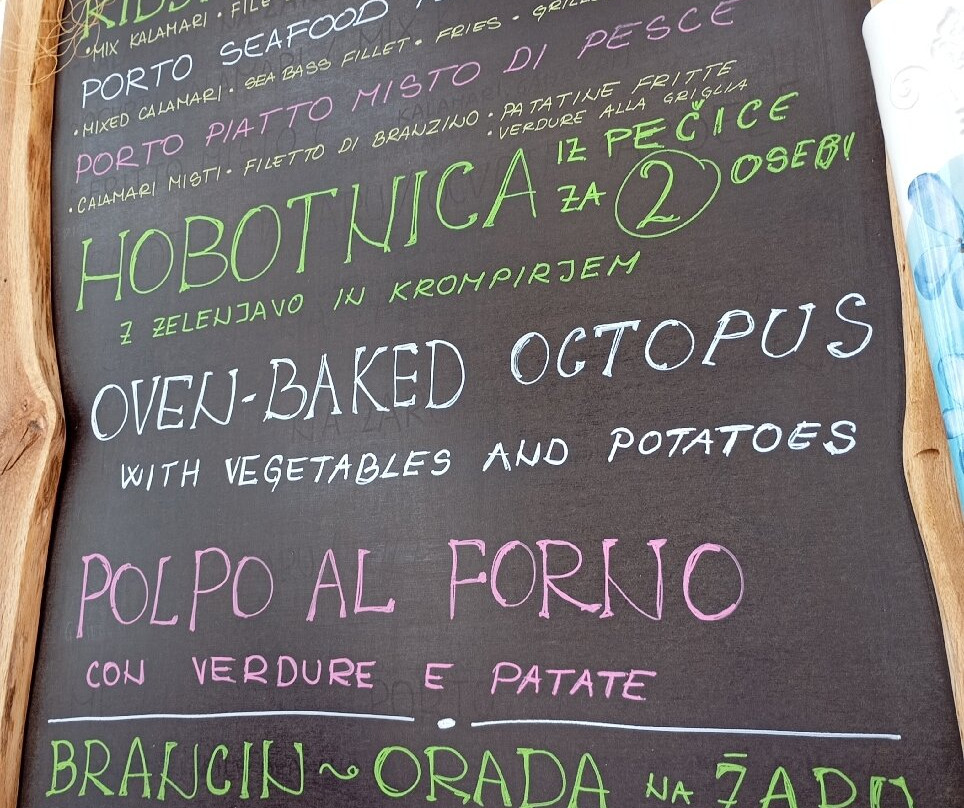 • MIX KALAMARI • FILE
PORTO SEAFOOD
• MIXED CALAMARI • SEA BASS FILLET • FRIES •
PORTO PIATTO MISTO DI PESCE
• CALAMARI MISTI • FILETTO DI BRANZINO • PATATINE FRITTE
• VERDURE ALLA GRIGLIA
HOBOTNICA IZ PEČICE
ZA 2 OSEBI
Z ZELENJAVO IN KROMPIRJEM
OVEN-BAKED OCTOPUS
WITH VEGETABLES AND POTATOES
POLPO AL FORNO
CON VERDURE E PATATE
BRANCIN ~ ORADA NA